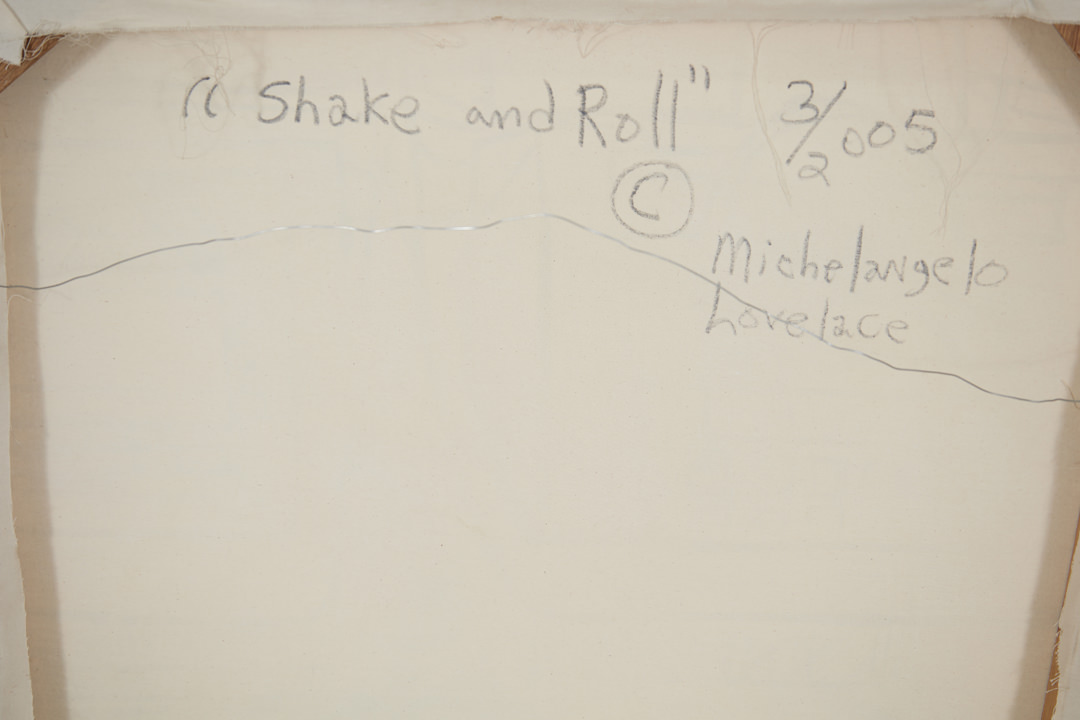 "Shake and Roll" 3/2005
©
Michelangelo
Lovelace